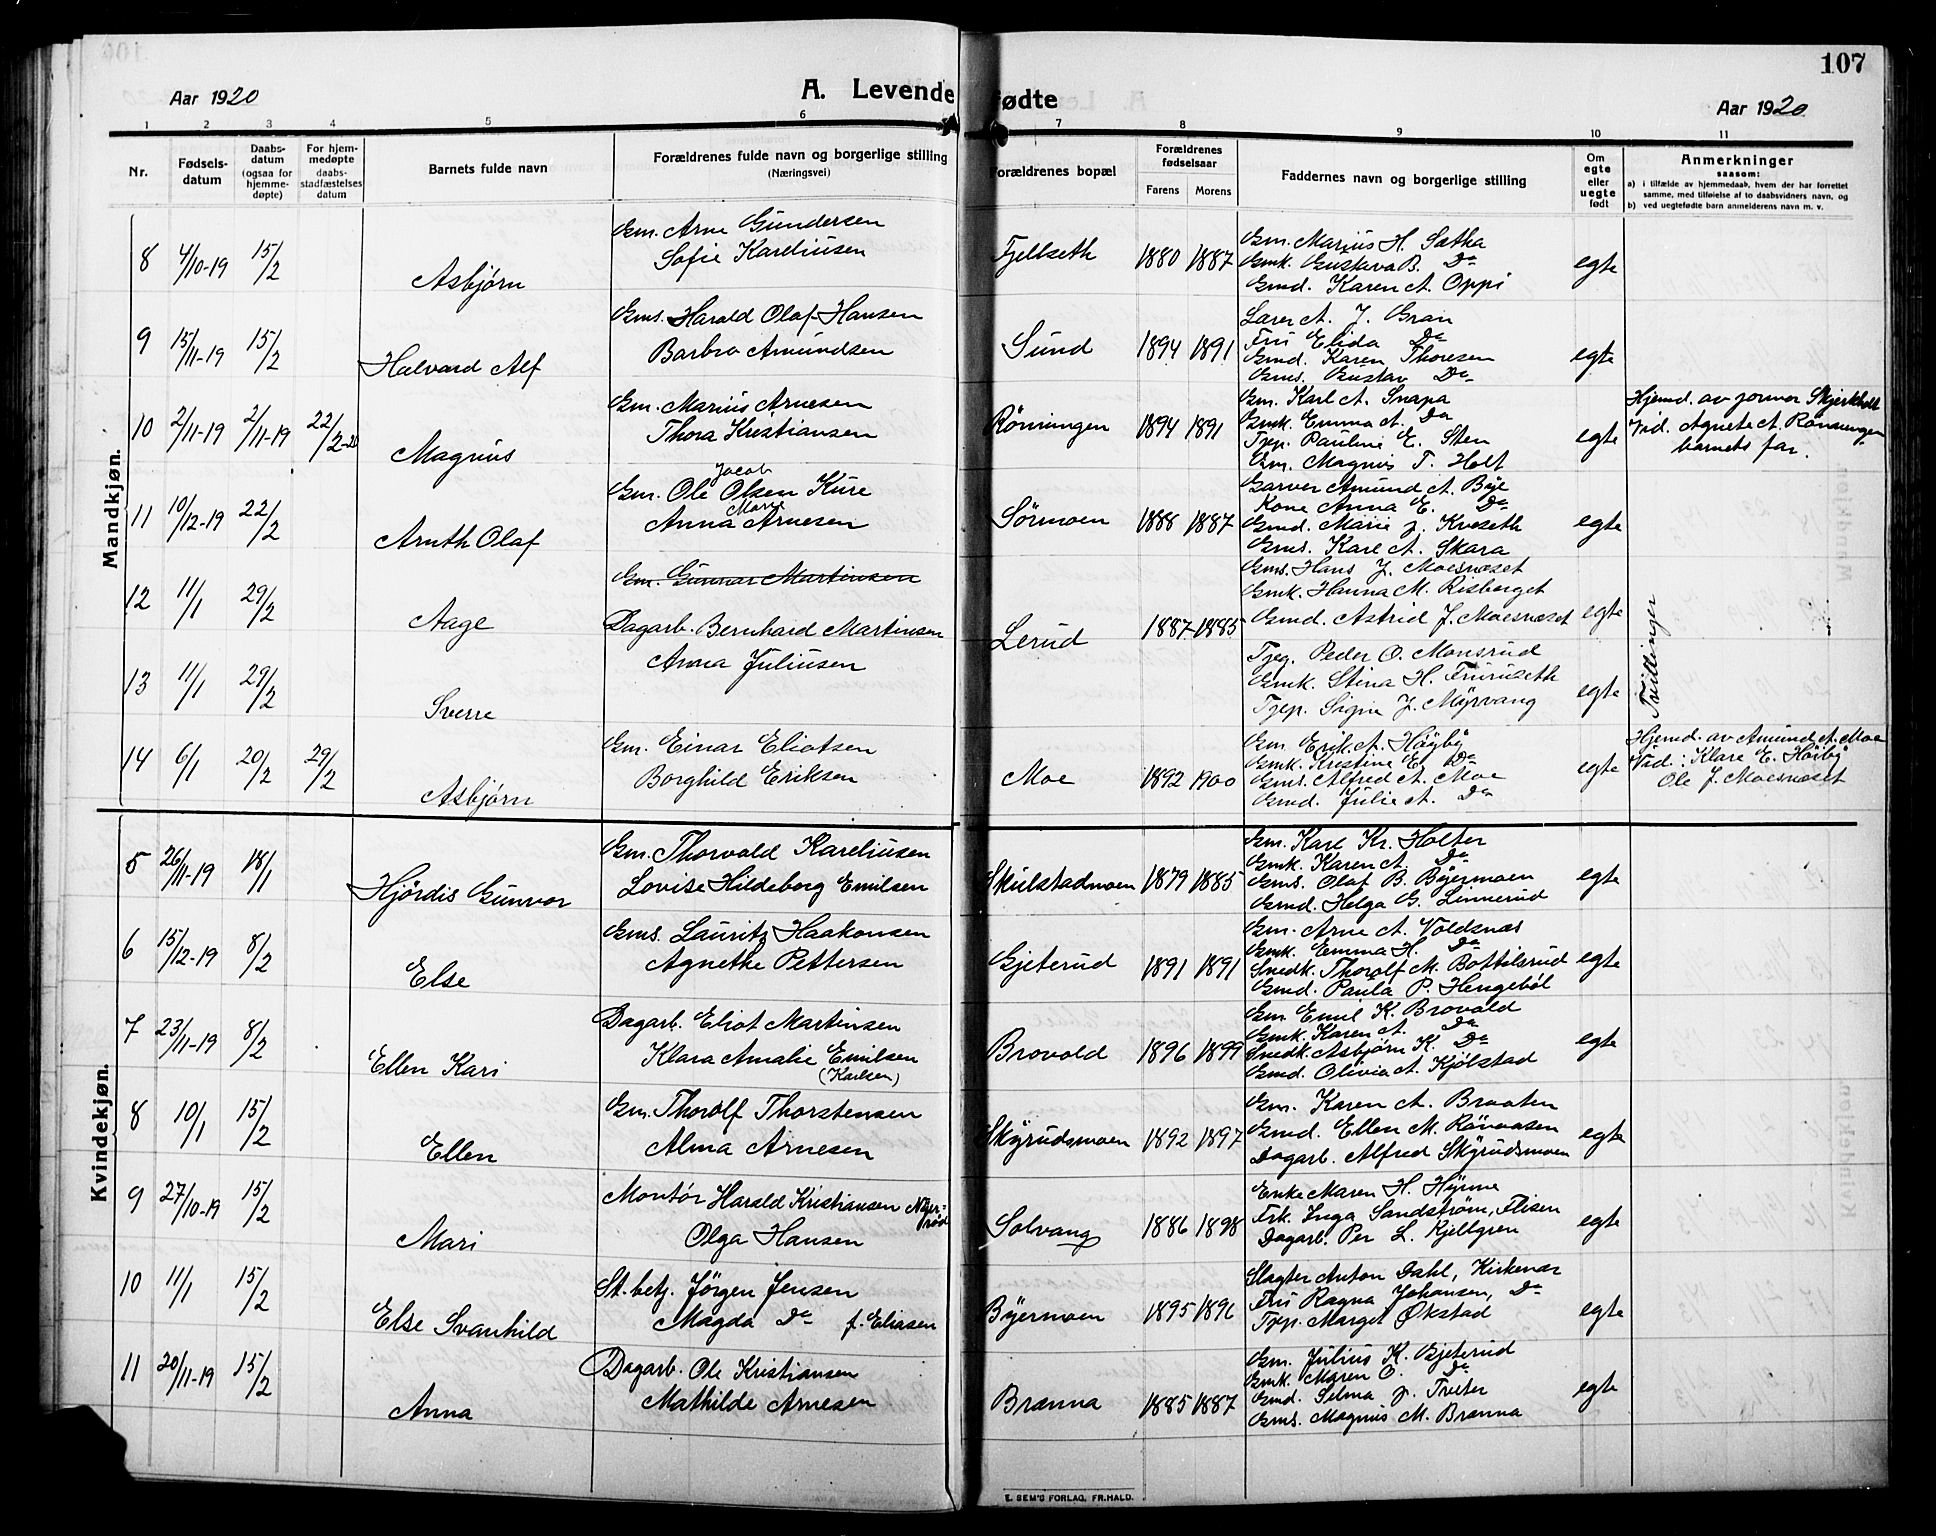 107
Aar 1920
A. Levende fødte
Aar 1920
1 2 3 4 5 6 7 8 9 10 11
Nr.
Fødsels-
datum
Daabs-
datum
(ogsaa for
hjemme-
døpte)
For hjem-
medøpte
daabs-
stadfæstelses
datum
Barnets fulde navn
Forældrenes fulde navn og borgerlige stilling
(Næringsvei)
Forældrenes bopæl
Forældrenes
fødselsaar
Farens Morens
Faddernes navn og borgerlige stilling
Om
egte
eller
uegte
født
Anmerkninger
saasom:
a) i tilfælde av hjemmedaab, hvem der har forrettet
samme, med tilføielse af to daabsvidners navn, og
b) ved uegtefødte barn anmelderens navn m. v.
Mandkjøn.
8 4/10-19 15/2 Asbjørn
Gm. Arne Gundersen
Sofie Kareliusen
Fjellseth 1880 1887
Gm. Marius H. Sætha
Gmk. Gustava B. Do
Gmd. Karen A. Oppi
egte
9 15/11-19 15/2 Halvard Alf
Gms. Harald Olaf Hansen
Barbro Amundsen
Sund 1894 1891
Lærer A. J. Gran
Fru Elida Do
Gmd. Karen Thoresen
Gms. Gustav Do
egte
10 2/11-19 2/11-19 22/2-20 Magnus
Gm. Marius Arnesen
Thora Kristiansen
Rønningen 1894 1891
Gm. Karl A. Snapa
Gmk. Emma A. Do
Tjep. Pauline E. Sten
Gm. Magnus T. Holt
egte
Hjemd. av jormor Skjerkholt
Vid. Agnete A. Rønningen
barnets far.
11 10/12-19 22/2 Arnth Olaf
Gm. Ole Jacob Olsen Kure
Anna Marie Arnesen
Sörmoen 1888 1887
Garver Amund A. Bye
Kone Anna E. Do
Gmd. Marie J. Kveseth
Gms. Karl A. Skara
egte
12 11/1 29/2 Aage
Gm. Gunnar Martinsen
Dagarb. Bernhard Martinsen
Anna Juliusen
Lerud 1887 1885
Gms. Hans J. Moesnæset
Gmk. Hanna M. Risberget
Gmd. Astrid J. Moesnæset
egte
Tvillinger
13 11/1 29/2 Sverre
Tjeg. Peder O. Monsrud
Gmk. Stina H. Fururseth
Tjep. Signe J. Myrvang
egte
14 6/1 20/2 29/2 Asbjørn
Gm. Einar Eliotsen
Borghild Eriksen
Moe 1892 1900
Gm. Erik A. Höybÿ
Gmk. Kristine E. Do
Gms. Alfred A. Moe
Gmd. Julie A. Do
egte
Hjemd. av Amund A. Moe
Vid.: Klare E. Höibÿ
Ole J. Moesnæset
Kvindekjøn.
5 26/11-19 18/1 Hjördis Gunvor
Gm. Thorvald Kareliusen
Lovise Hildeborg Emilsen
Skulstadmoen 1879 1885
Gm. Karl Kr. Holter
Gmk. Karen A. Do
Gms. Olaf B. Byermoen
Gmd. Helga G. Linnerud
egte
6 15/12-19 8/2 Else
Gms. Lauritz Haakonsen
Agnethe Pettersen
Gjeterud 1891 1891
Gm. Arne A. Voldsnæs
Gmk. Emma H. Do
Snedk. Thorolf M. Bottilsrud
Gmd. Paula P. Hengeböl
egte
7 23/11-19 8/2 Ellen Kari
Dagarb. Eliot Martinsen
Klara Amalie Emilsen
(Karlsen)
Brovold 1896 1899
Gm. Emil K. Brovold
Gmk. Karen A. Do
Snedk. Asbjørn K. Do
Gmd. Olivia A. Kjölstad
egte
8 10/1 15/2 Ellen
Gm. Thorolf Thorstensen
Alma Arnesen
Skyrudsmoen 1892 1897
Gm. Karen A. Braaten
Gmd. Ellen M. Rövaasen
Dagarb. Alfred Skyrudsmoen
egte
9 27/10-19 15/2 Mari
Montör Harald Kristiansen
Olga Hansen
Solvang 1886 1898
Enke Maren H. Hynne
Frk. Inga Sandström, Flisen
Dagarb. Per L. Kjellgren
egte
10 11/1 15/2 Else Svanhild
St. betj. Jørgen Jensen
Magda Do f. Eliasen
Byermoen 1895 1896
Slagter Anton Dahl, Kirkenær
Fru Ragna Johansen, Do
Tjep. Margit Økstad
egte
11 20/11-19 15/2 Anna
Dagarb. Ole Kristiansen
Mathilde Arnesen
Brænna 1885 1887
Gm. Julius K. Gjeterud
Gmk. Maren O. Do
Gmd. Selma J. Tveter
Gms. Magnus M. Brænna
egte
E. SEM'S FORLAG, FR.HALD.